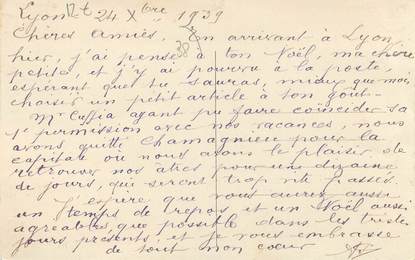 Lyon 24 Xbre 1939
Chères Amies, En arrivant à Lyon
hier, j'ai pensé à ton Noël, ma chère
petite, et j'y ai pourvu à la poste
espérant que tu sauras, mieux que moi
choisir un petit article à ton goût.
Mr ayant pu faire coïncider sa
permission avec nos vacances, nous
avons quitté pour la
capitale où nous avons le plaisir de
retrouver nos pour une dizaine
de jours, qui seront trop vite passés.
J'espère que vous aurez aussi
un temps de repos et un Noël aussi
agréables que possible dans les tristes
jours présents, et je vous embrasse
de tout mon coeur